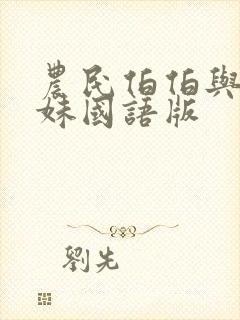 農民伯伯與
妹國語版
劉先